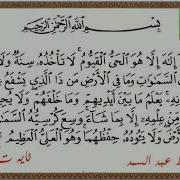 بِسْمِ اللَّهِ الرَّحْمَٰنِ الرَّحِيمِ
إِلَٰهَ إِلَّا هُوَ الْحَيُّ الْقَيُّومُ لَا تَأْخُذُهُ سِنَةٌ وَلَا
السَّمَاوَاتِ وَمَا فِي الْأَرْضِ مَن ذَا الَّذِي يَشْفَعُ
يَعْلَمُ مَا بَيْنَ أَيْدِيهِمْ وَمَا خَلْفَهُمْ وَلَا
مِنْ عِلْمِهِ إِلَّا بِمَا شَاءَ وَسِعَ كُرْسِيُّهُ السَّمَاوَاتِ
وَلَا يَئُودُهُ حِفْظُهُمَا وَهُوَ الْعَلِيُّ الْعَظِيمُ
عبد